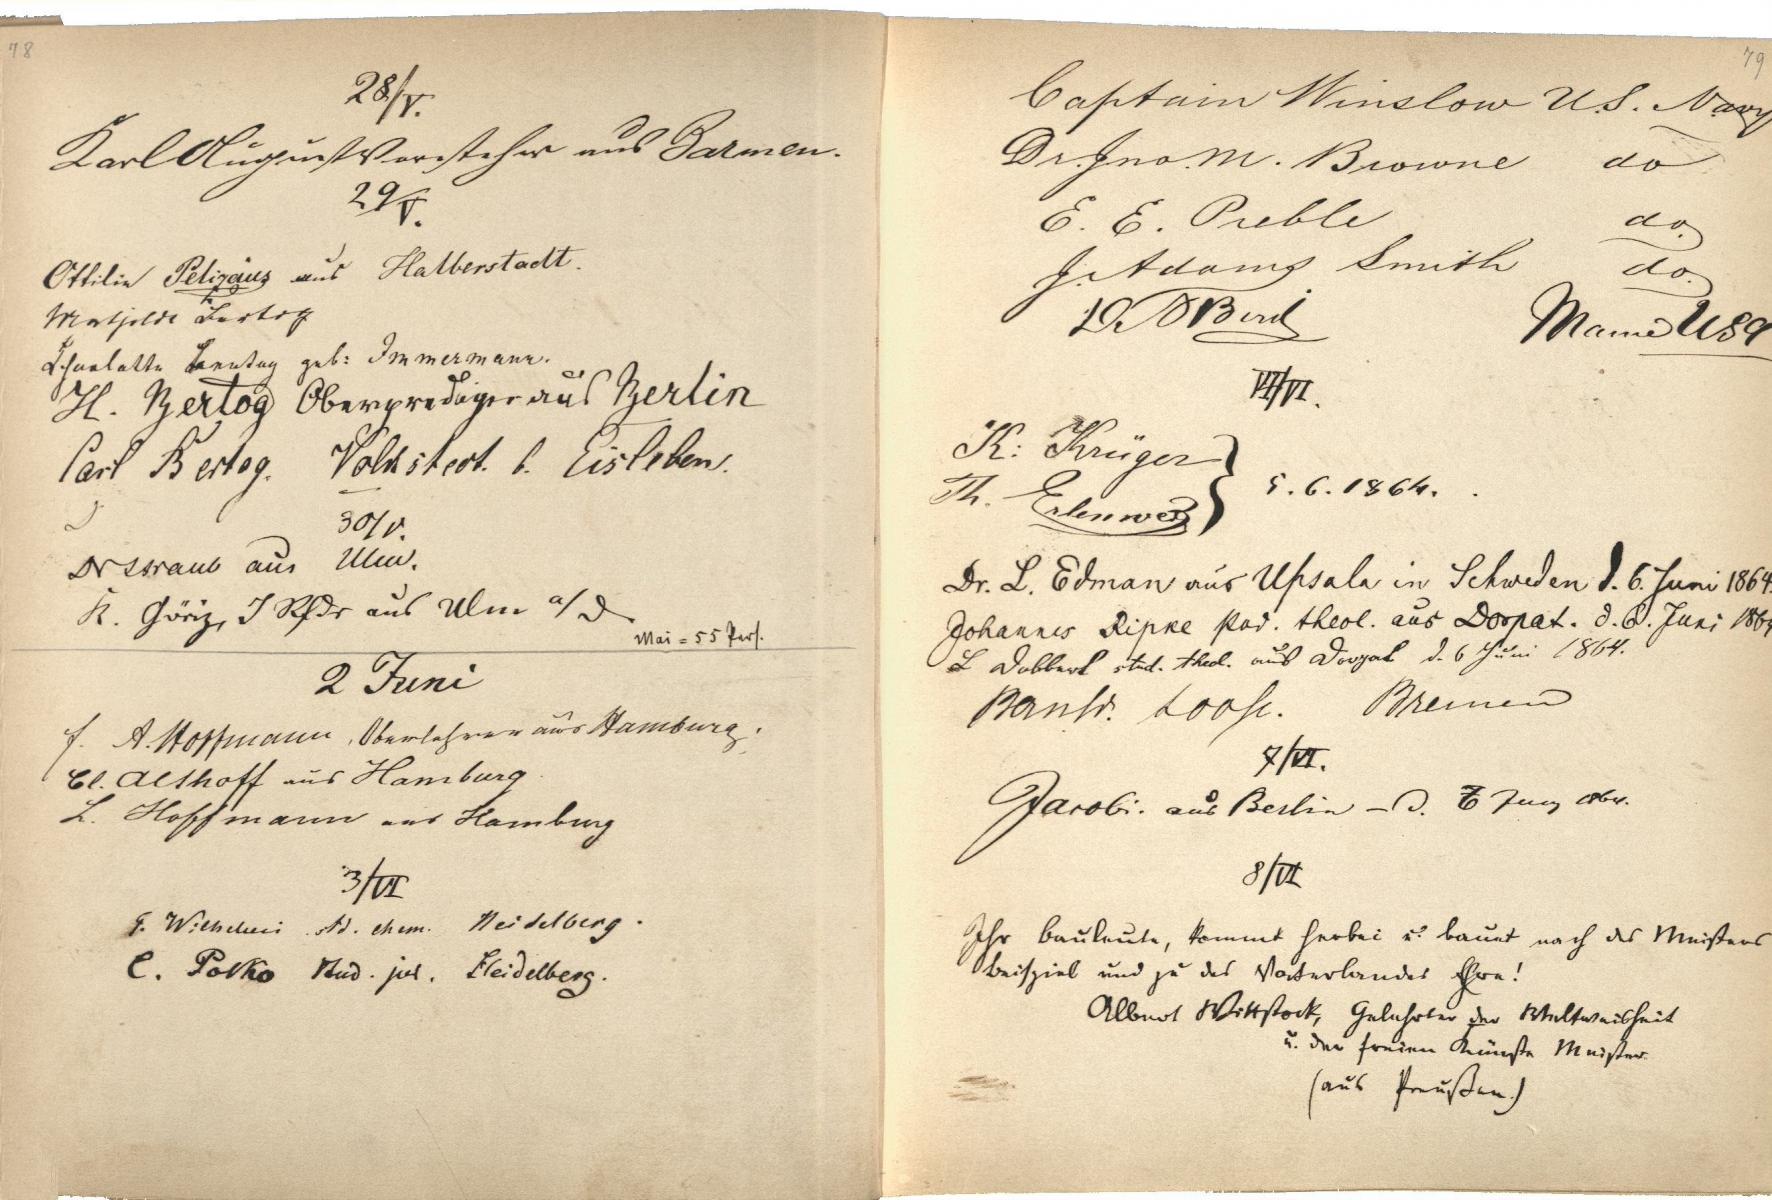 78
28/V.
Karl August Vorsteher aus Barmen.
29/V.
Ottilie Pelizäus aus Halberstadt.
Mathilde Bertog
Charlotte geb: Immermann.
H. Bertog Oberprediger aus Berlin
Carl Bertog. Volkstedt. b. Eisleben.
30/V.
Dr Straub aus Ulm.
K. Göriz, aus Ulm a/D
Mai = 55 Pers.
2 Juni
f. A. Hoffmann, Oberlehrer aus Hamburg.
Cl. Althoff aus Hamburg.
L. Hoffmann aus Hamburg
3/VI
F. Wilhelmi std. chem. Heidelberg.
C. Polko Stud. jur. Heidelberg.
79
Captain Winslow U.S. Navy
Dr. Jno. M. Browne do
E. E. Preble do.
J. Adams Smith do.
Maine USA
VI/VI.
K: Krüger
Th. Erlenwein
5. 6. 1864.
Dr. L. Edman aus Upsala in Schweden d. 6. Juni 1864.
Johannes Ripke theol. aus Dorpat. d. 6. Juni 1864
L Dobbert stud. theol. aus Dorpat d. 6 Juni 1864.
Bernhd. Loose. Bremen
7/VI.
Jacobi. aus Berlin – d. 7 Juny 1864.
8/VI
Ihr Bauleute, kommt herbei u. bauet nach des Meisters
Beispiel und zu des Vaterlandes Ehre!
Albert Wittstock, Gelehrter der Weltweisheit
u. der freien Künste Meister.
(aus Preußen.)